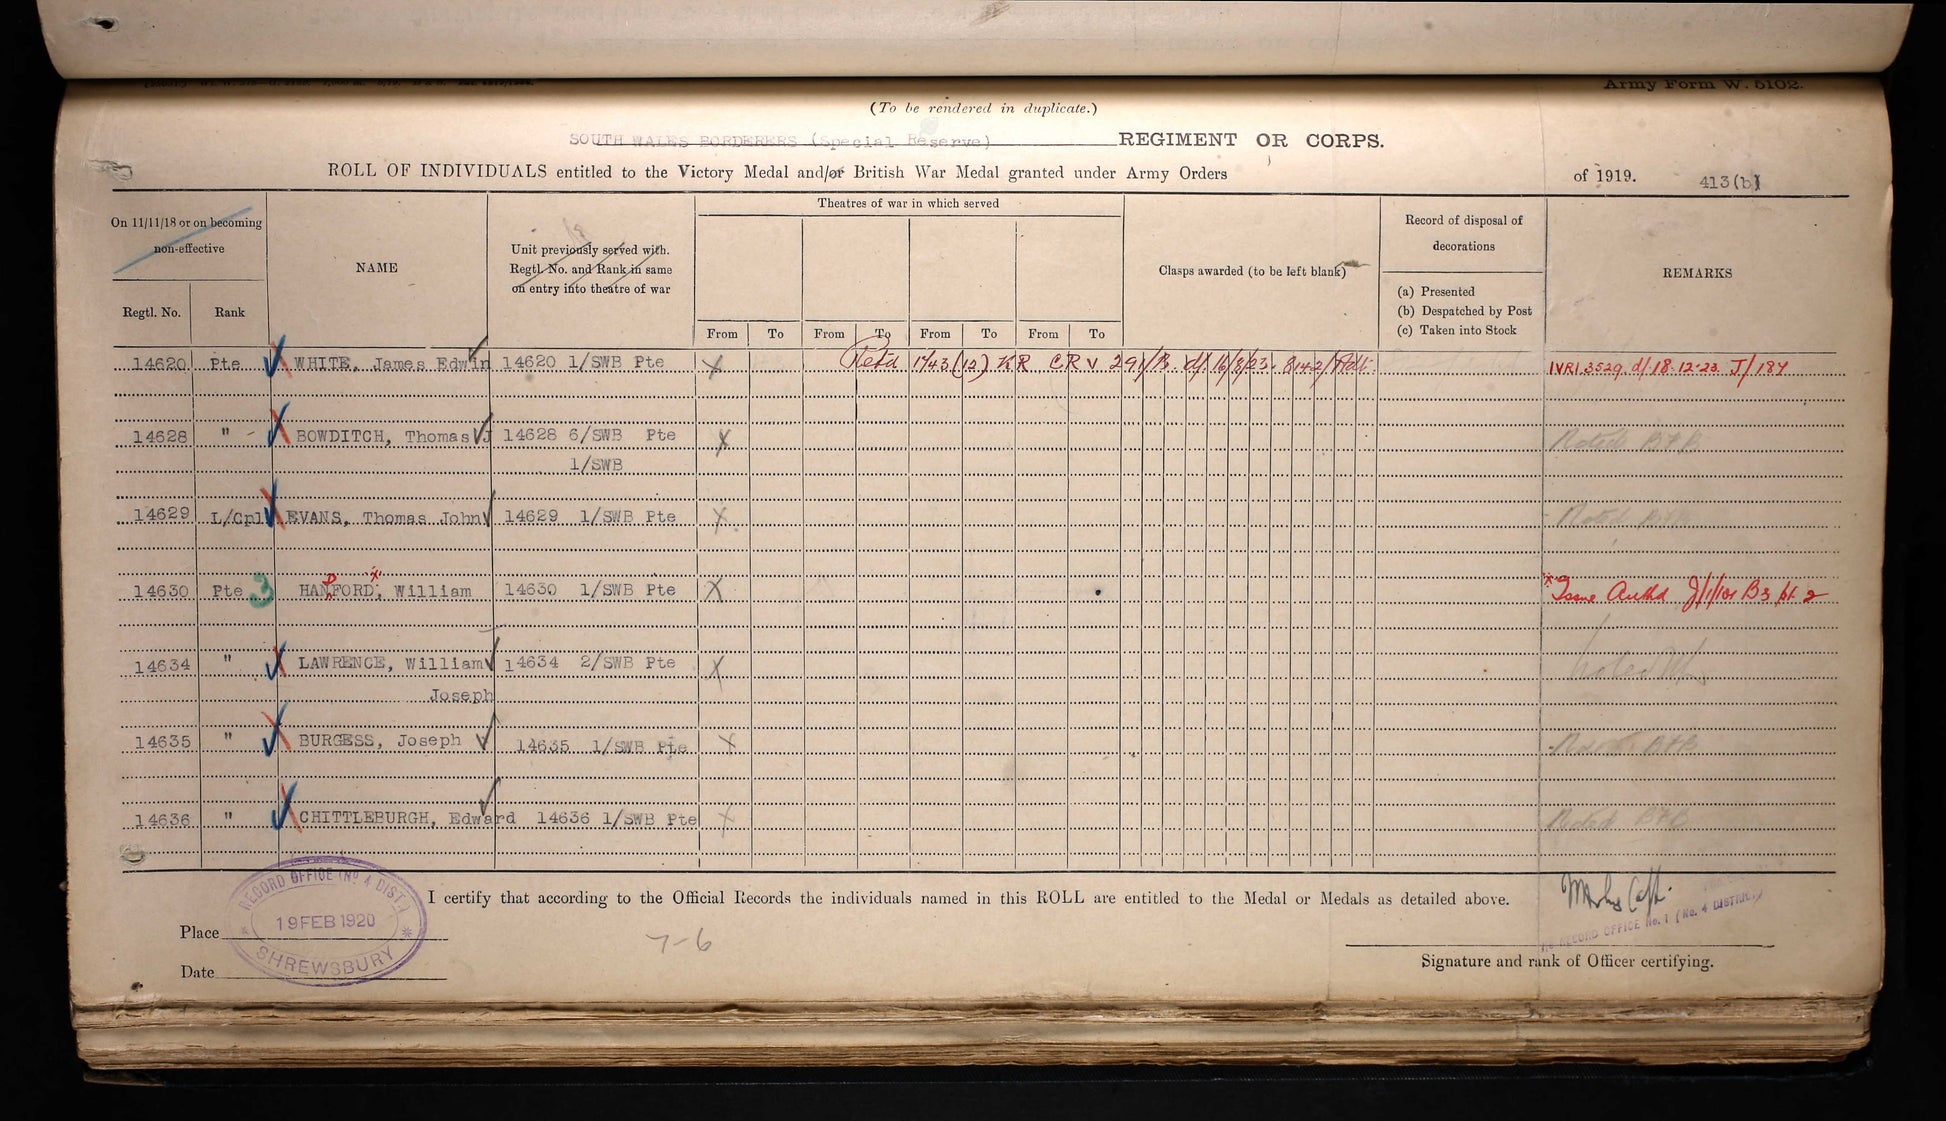 Army Form W. 5102.
(To be rendered in duplicate.)
SOUTH WALES BORDERERS (Special Reserve) REGIMENT OR CORPS.
ROLL OF INDIVIDUALS entitled to the Victory Medal and/or British War Medal granted under Army Orders of 1919. 413(b)
On 11/11/18 or on becoming
non-effective
Regtl. No. Rank
NAME
Unit previously served with.
Regtl. No. and Rank in same
on entry into theatre of war
Theatres of war in which served
From To From To From To From To
Clasps awarded (to be left blank)
Record of disposal of
decorations
(a) Presented
(b) Despatched by Post
(c) Taken into Stock
REMARKS
14620 Pte WHITE, James Edwin 14620 1/SWB Pte X Retd 1743 (12) KR CRV 291/B. d/. 16/8/23. 8142/Adt. IVR/3529 d/18-12-23 J/184
14628 " BOWDITCH, Thomas J 14628 6/SWB Pte X Noted
1/SWB
14629 L/Cpl EVANS, Thomas John 14629 1/SWB Pte X Noted
14630 Pte 3 HANFORD, William 14630 1/SWB Pte X Issue Authd
14634 " LAWRENCE, William 14634 2/SWB Pte X Noted
Joseph
14635 " BURGESS, Joseph 14635 1/SWB Pte X Noted
14636 " CHITTLEBURGH, Edward 14636 1/SWB Pte X Noted
RECORD OFFICE (No 4 DIST.)
19 FEB 1920
SHREWSBURY
I certify that according to the Official Records the individuals named in this ROLL are entitled to the Medal or Medals as detailed above.
Capt.
RECORD OFFICE No. 1 (No. 4 DISTRICT)
Place
7-6
Date
Signature and rank of Officer certifying.